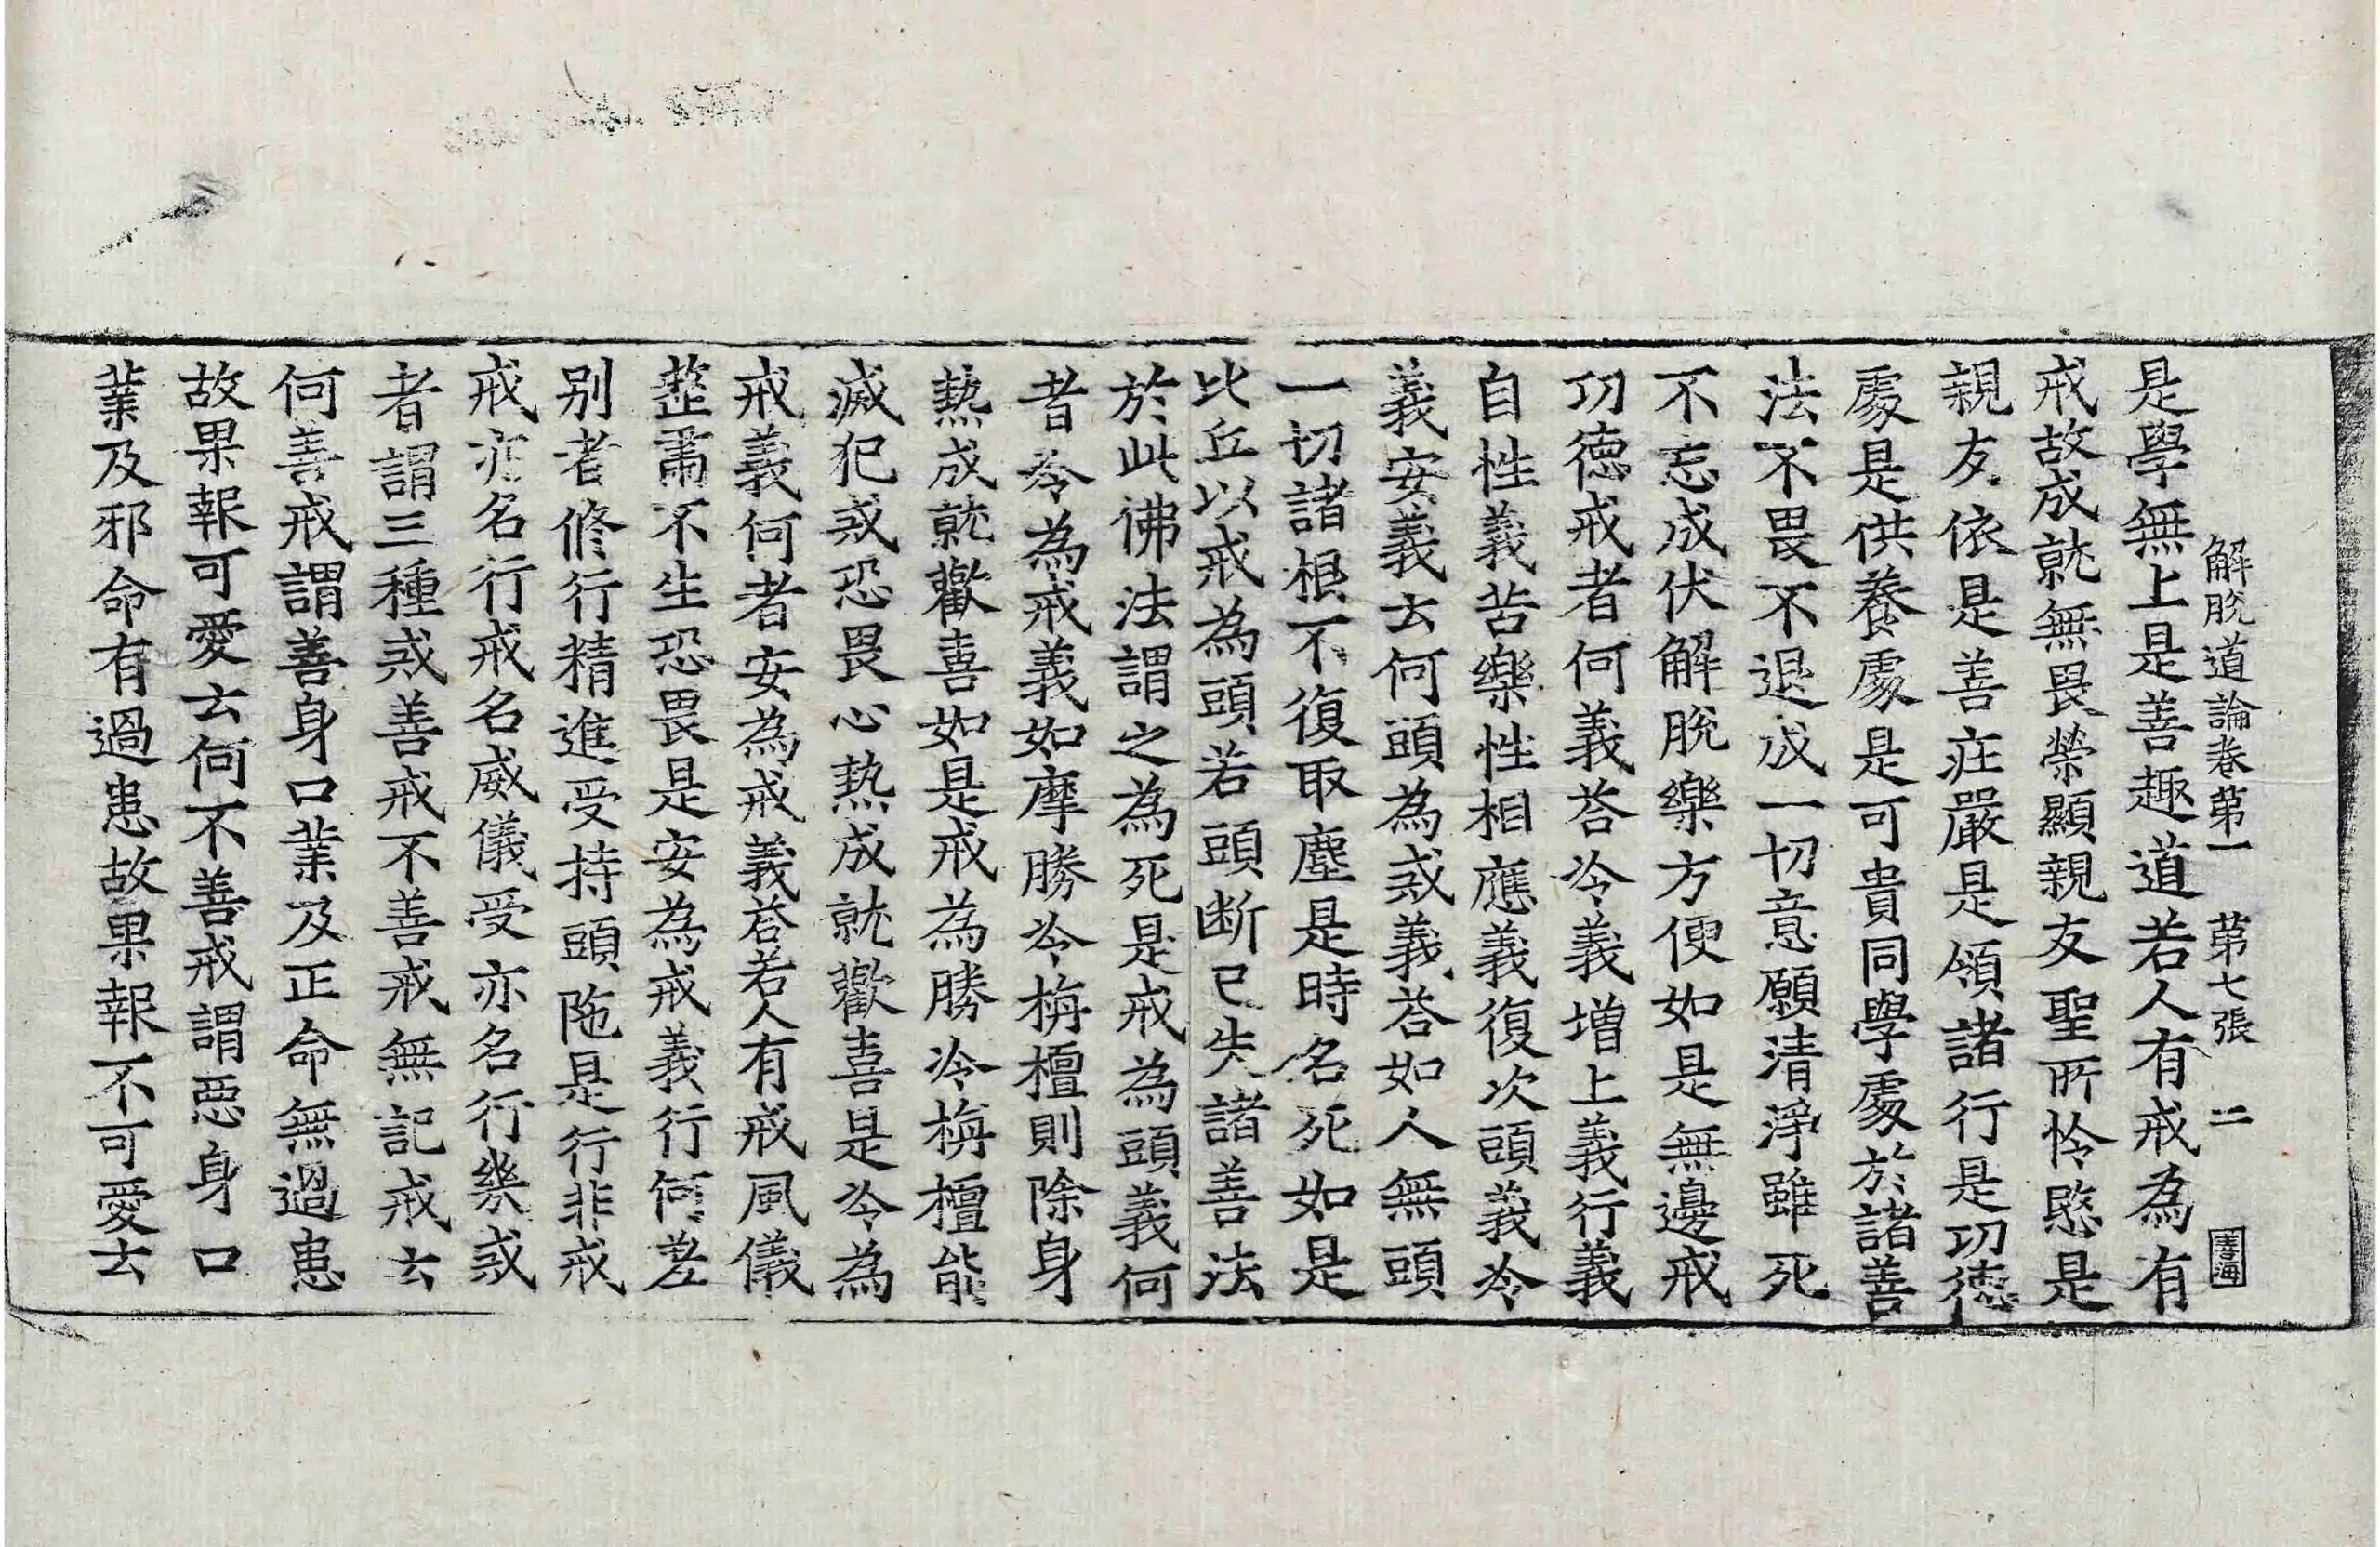 解脫道論卷第一 第七張 二
是學無上是善趣道若人有戒為有
戒故成就無畏榮顯親友聖所怜愍是
親友依是善庄嚴是領諸行是功德
處是供養處是可貴同學處於諸善
法不畏不退成一切意願清淨雖死
不忘成伏解脫樂方便如是無邊戒
功德戒者何義荅冷義增上義行義
自性義苦樂性相應義復次頭義冷
義安義云何頭為戒義荅如人無頭
一切諸根不復取塵是時名死如是
比丘以戒為頭若頭断已失諸善法
於此佛法謂之為死是戒為頭義何
者冷為戒義如摩勝冷栴檀則除身
熱成就歡喜如是戒為勝冷栴檀能
滅犯戒恐畏心熱成就歡喜是冷為
戒義何者安為戒義荅若人有戒風儀
整肅不生恐畏是安為戒義行何差
别者修行精進受持頭陁是行非戒
戒亦名行戒名威儀受亦名行幾戒
者謂三種戒善戒不善戒無記戒云
何善戒謂善身口業及正命無過患
故果報可愛云何不善戒謂惡身口
業及邪命有過患故果報不可愛云